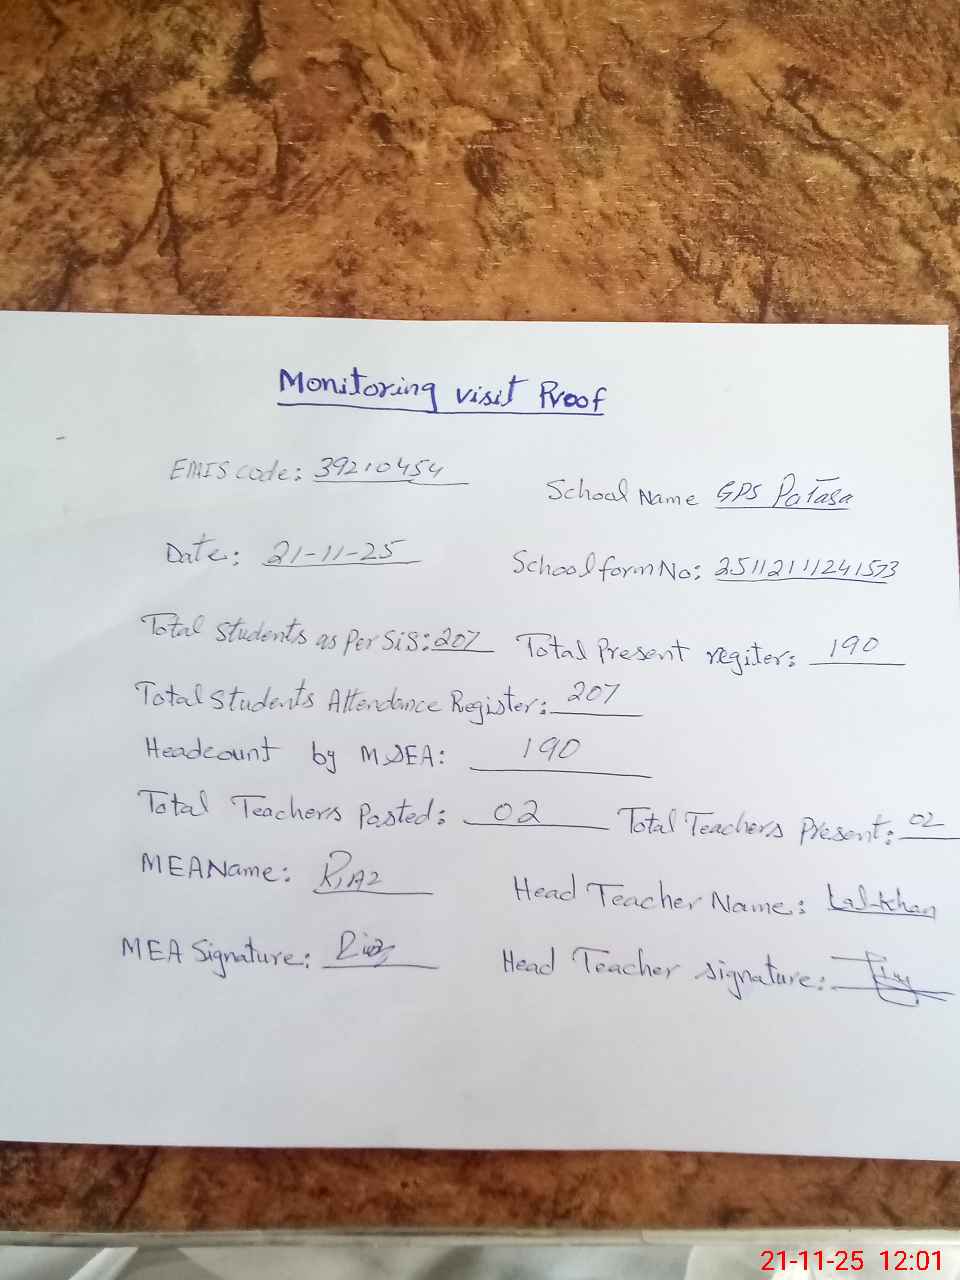 Monitoring visit Proof
EMIS code: 39210454
School Name GPS Potasa
Date: 21-11-25
School form No: 25112111241573
Total Students as Per SiS: 207 Total Present regiter: 190
Total Students Attendance Register: 207
Headcount by MSEA: 190
Total Teachers Posted: 02 Total Teachers Present: 02
MEA Name: Riaz
Head Teacher Name: Lal khan
MEA Signature: Riaz
Head Teacher signature:
21-11-25 12:01